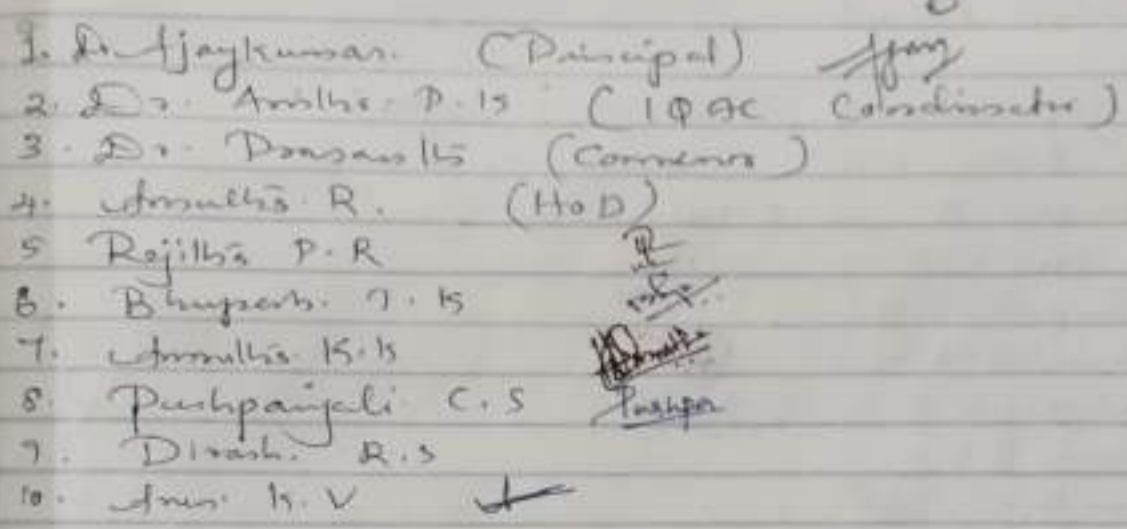 1. Dr. Ajaykumar. (Principal) Ajay
2. Dr. P.K (IQAC Coordinator)
3. Dr. Prasanth (Convenor)
4. Amrutha R. (HoD)
5 Rejitha P.R
6. Bhupesh. T.K
7. Amrutha K.K
8. Pushpanjali C.S Pushpa
9. Dinash. R.S
10. K.V